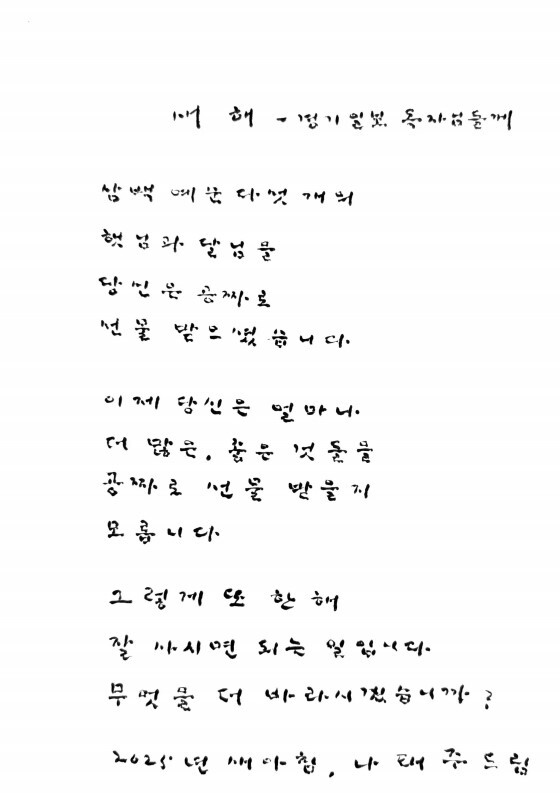 새해 - 경기일보 독자님들께
삼백 예순다섯 개의
햇님과 달님을
당신은 공짜로
선물 받으셨습니다.
이제 당신은 얼마나
더 많은, 좋은 것들을
공짜로 선물 받을지
모릅니다.
그렇게 또 한 해
잘 사시면 되는 일입니다.
무엇을 더 바라시겠습니까?
2025년 새아침, 나태주 드림